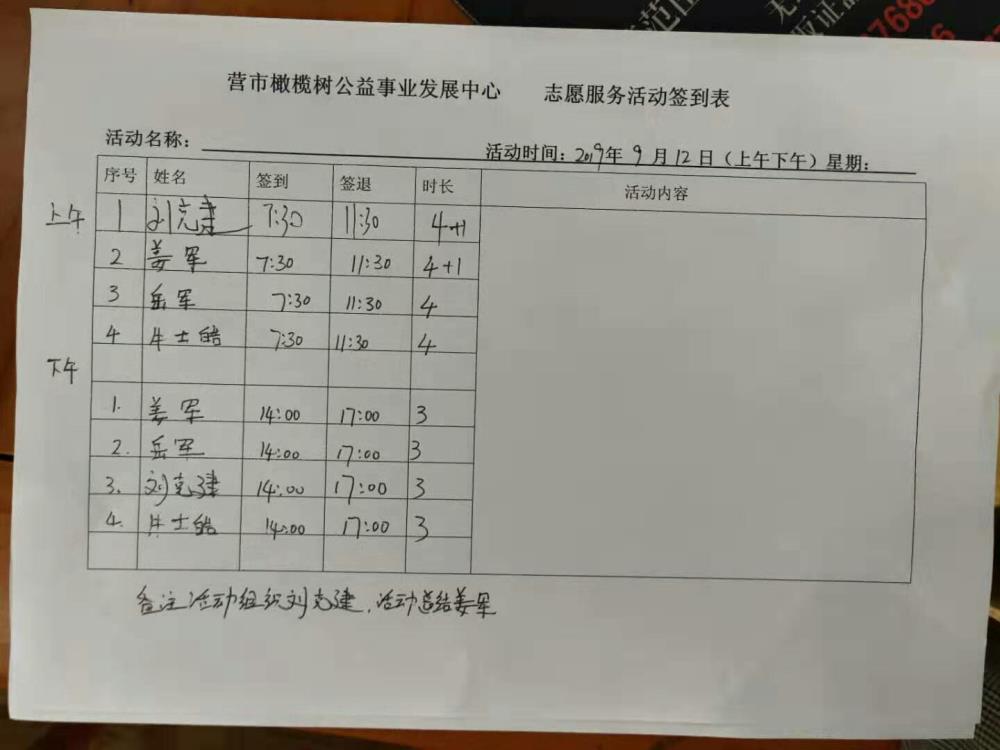 营市橄榄树公益事业发展中心 志愿服务活动签到表
活动名称： 活动时间：2019年 9 月 12 日（上午下午）星期：
序号 姓名 签到 签退 时长 活动内容
上午 1 刘克建 7:30 11:30 4+1
2 姜军 7:30 11:30 4+1
3 岳军 7:30 11:30 4
4 牛士皓 7:30 11:30 4
下午
1. 姜军 14:00 17:00 3
2. 岳军 14:00 17:00 3
3. 刘克建 14:00 17:00 3
4. 牛士皓 14:00 17:00 3
备注活动组织刘克建，活动总结姜军